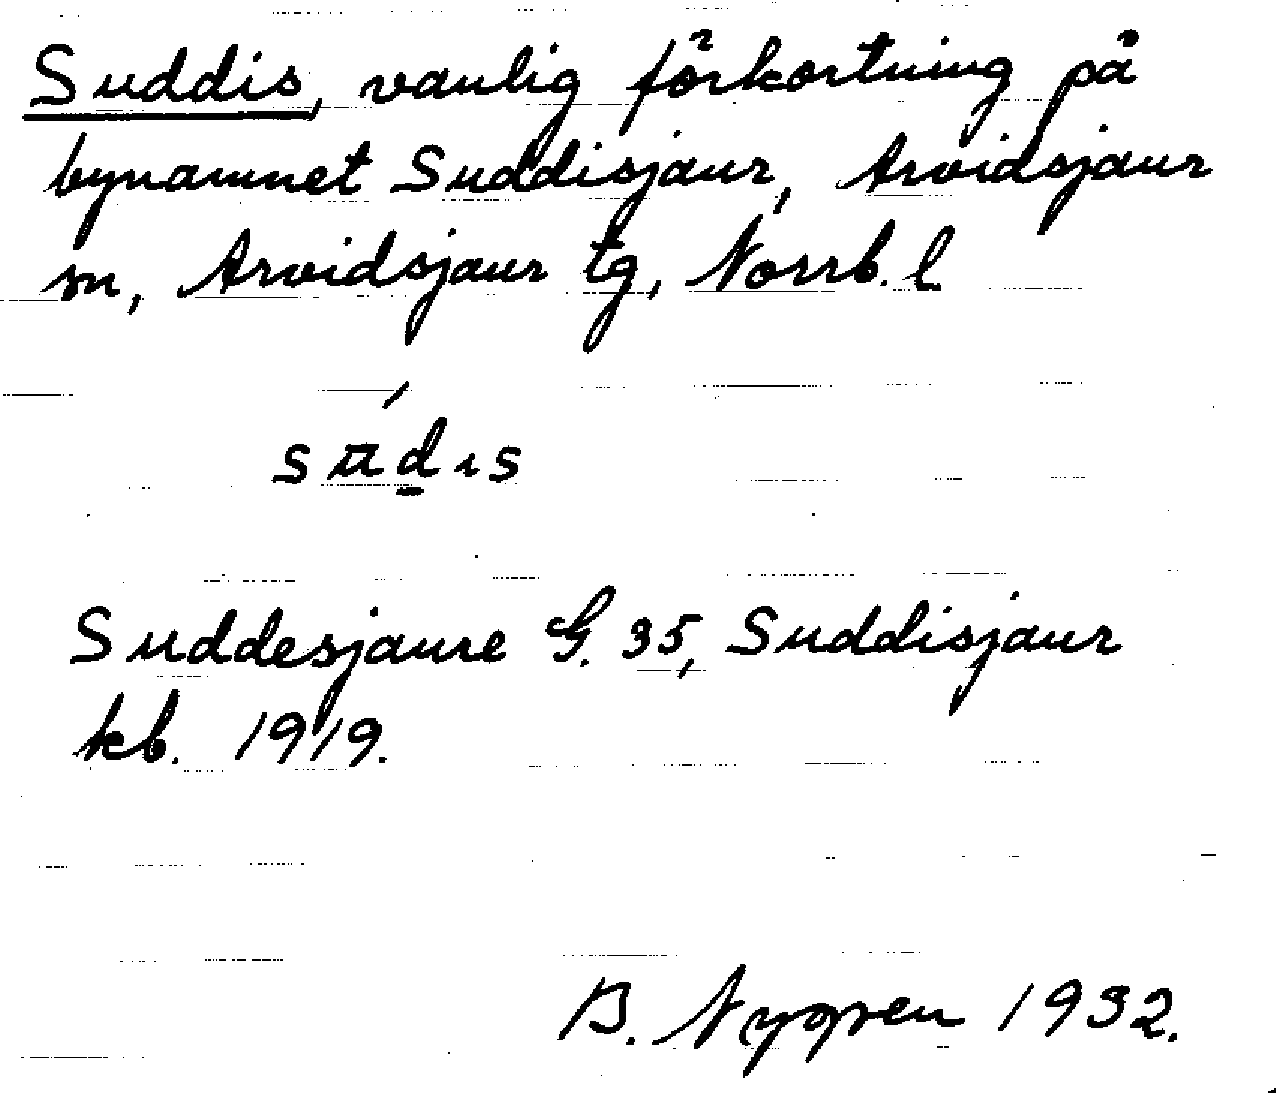 Suddis, vanlig förkortning på
bynamnet Suddisjaur, Arvidsjaur
sn, Arvidsjaur tg, Norrb. l.
Suddesjaure G. 35, Suddisjaur
kb. 1919.
B. Nygren 1932.